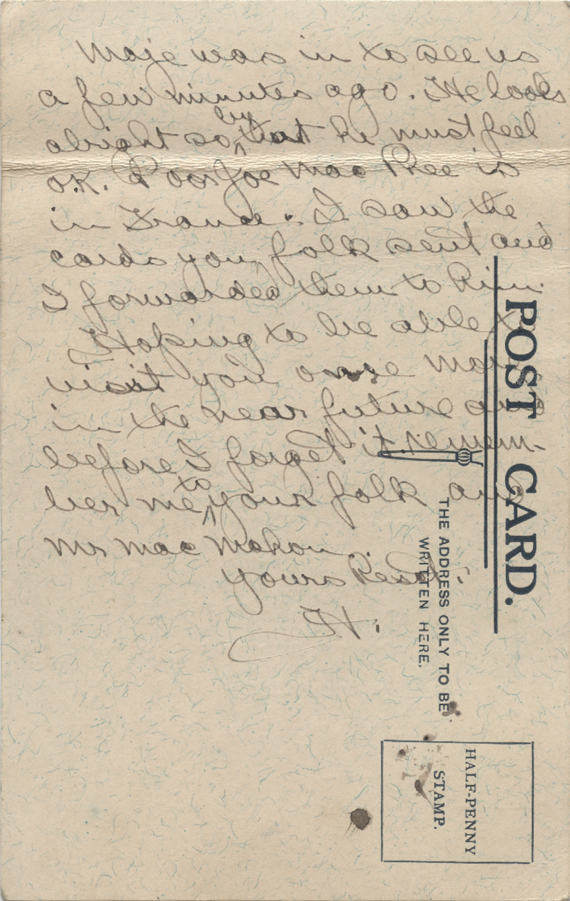 Maje was in to see us
a few minutes ago. He looks
alright so by that he must feel
O.K. Poor Joe Mac Phee is
in France. I saw the
cards your folk sent and
I forwarded them to him.
Hoping to be able to
visit you once more
in the near future and
before I forget it remem-
ber me to your folk and
Mr Mac Mahon.
Yours Resp.
H.
POST CARD.
THE ADDRESS ONLY TO BE
WRITTEN HERE.
HALF-PENNY
STAMP.